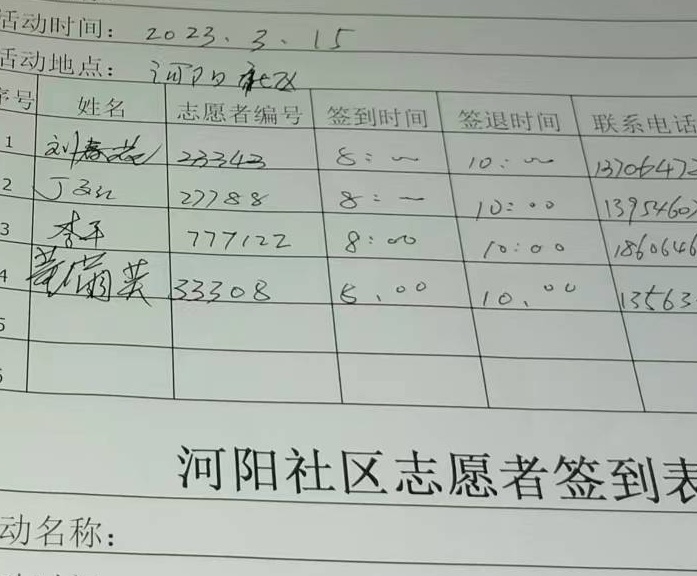 活动时间: 2023.3.15
活动地点: 河阳社区
序号 姓名 志愿者编号 签到时间 签退时间 联系电话
1 刘春 23343 8: 10: 13706472
2 丁 27788 8: 10:00 1395460
3 李平 777122 8:00 10:00 1860646
4 英 33308 10.00 13563
5
河阳社区志愿者签到表
动名称: